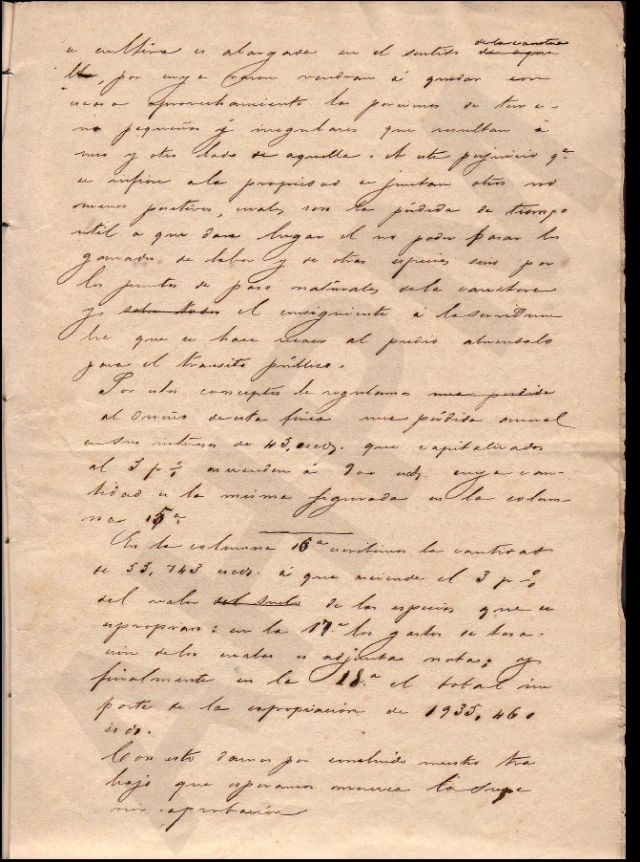 se cultiva es alargada en el sentido de la carretera de aque
lla, por cuya razon vendran á quedar con
escaso aprovechamiento las porciones de terre-
no pequeños é irregulares que resultan á
uno y otro lado de aquella. A este perjuicio qe.
se infiere a la propiedad se juntan otros no
menos positivos, cuales son la pérdida de tiempo
util a que dara lugar el no poder pasar los
ganados de labor y de otras especies sino por
los puntos de paso naturales de la carretera
y sobre todos el consiguiente á la servidum
bre que se hace recaer al predio abriendolo
para el transito público.
Por estos conceptos le regulamos una perdida
al Dueño de esta finca una pérdida anual
en sus intereses de 45, escds. que capitalizados
al 3 p% ascienden á escds. cuya can-
tidad es la misma figurada en la colum-
na 15ª.
En la columna 16ª escribimos la cantidad
de 55,743 escds. á que asciende el 3 p%
del valor del suelo de las especies que se
espropian: en la 17.ª los gastos de tasa-
cion de los cuales es adjunta nota; y
finalmente en la 18.ª el total im
porte de la espropiación de 1935,460
escds.
Con esto damos por concluido nuestro tra
bajo que esperamos merezca la supe
rior aprobación